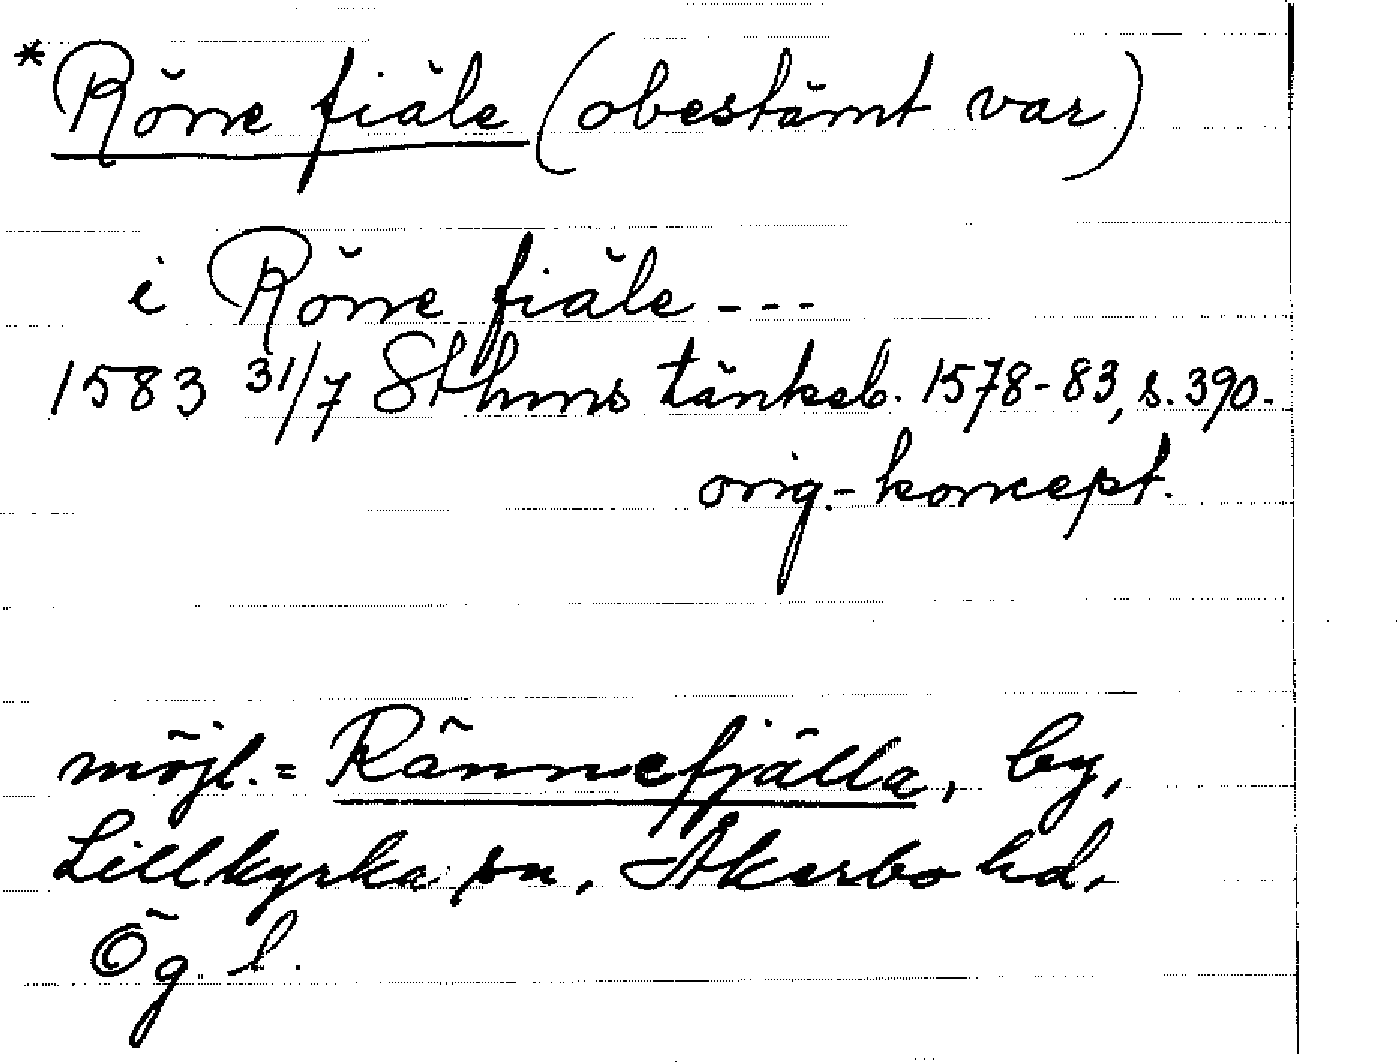 *Rönne fiäle (obestämt var)
i Rönne fiäle ---
1583 31/7 Sthms tänkeb. 1578-83, s. 390.
orig.-koncept.
möjl. = Rännefjälla, by,
Lillkyrka sn, Åkerbo hd,
Ög. l.